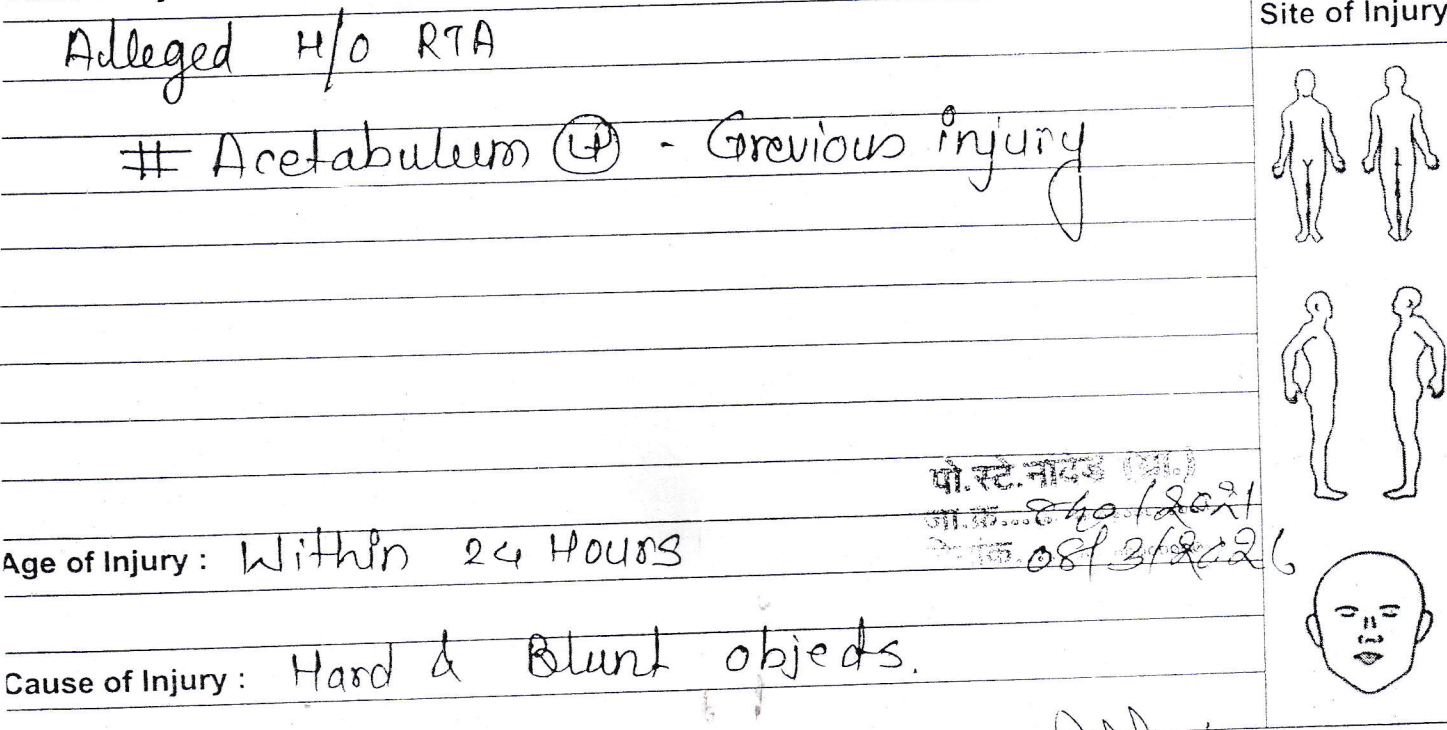 Site of Injury
Alleged H/O RTA
# Acetabulum Ⓛ - Grevious injury
पो.स्टे.नांदेड (ग्रा.)
जा.क्र.... /2021
08/3/2026
Age of Injury : Within 24 Hours
Cause of Injury : Hard & Blunt objects.